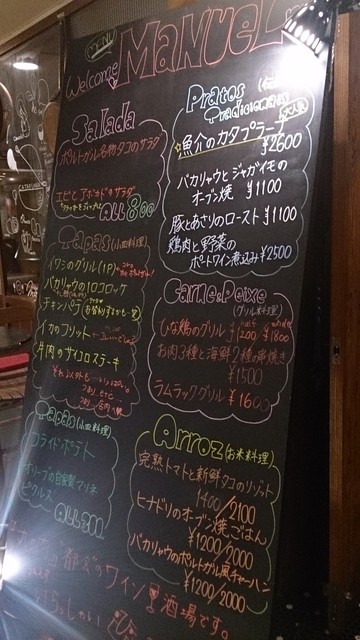 MENU
Welcome MANUEL
Salada
ポルトガル名物タコのサラダ
エビとアボカドサラダ
ALL 800
Tapas (小皿料理)
イワシのグリル(1P)
バカリャウの1口コロッケ
チキンパテ
イカのフリット
牛肉のサイコロステーキ
Tapas (小皿料理)
フライドポテト
オリーブの自家製マリネ
ピクルス
Pratos Tradicionais
☆魚介のカタプラーナ
¥2600
バカリャウとジャガイモの
オーブン焼 ¥1100
豚とあさりのロースト ¥1100
鶏肉と野菜の
ポートワイン煮込み ¥2500
Carne e Peixe
(グリル料理)
ひな鶏のグリル half ¥1200 whole ¥1800
お肉3種と海鮮2種の串焼き
¥1500
ラムラックグリル
Arroz (お米料理)
完熟トマトと新鮮タコのリゾット
1400/2100
ヒナドリのオーブン焼ごはん
¥1200/2000
バカリャウのポルトガル風チャーハン
¥1200/2000
ワイン 酒場です。